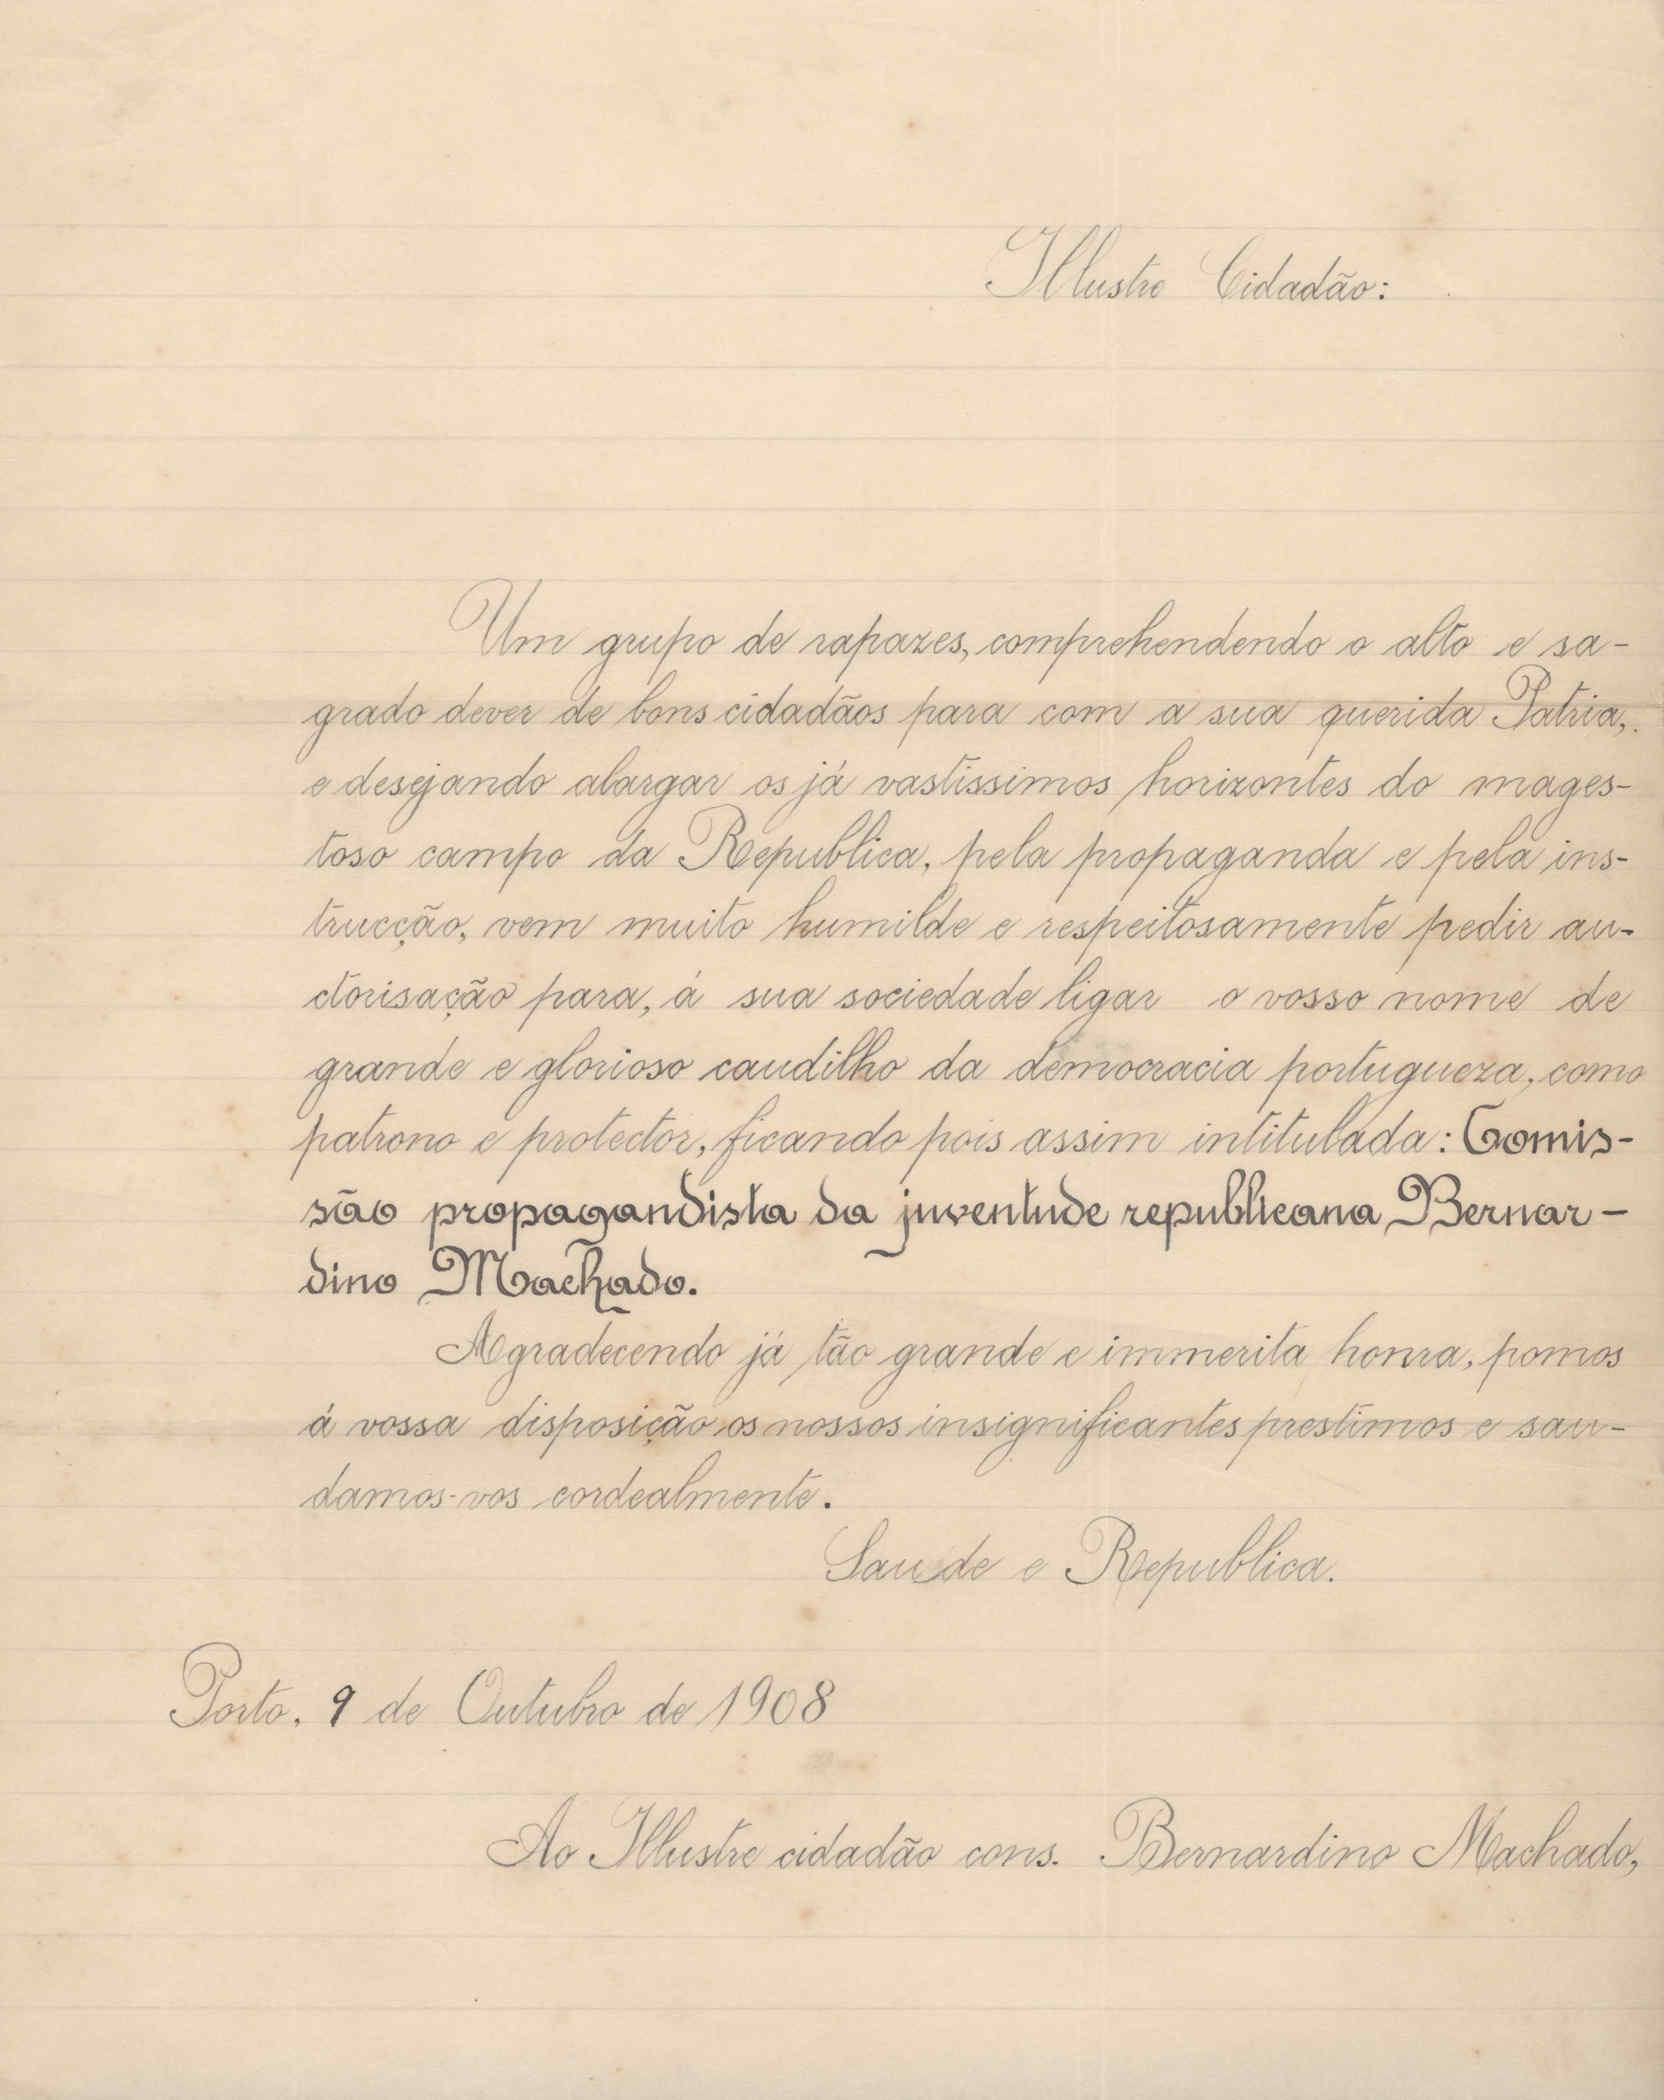 Illustre Cidadão:
Um grupo de rapazes, comprehendendo o alto e sa-
grado dever de bons cidadãos para com a sua querida Patria,
e desejando alargar os já vastissimos horizontes do mages-
toso campo da Republica, pela propaganda e pela ins-
trucção, vem muito humilde e respeitosamente pedir au-
ctorisação para, á sua sociedade ligar o vosso nome de
grande e glorioso caudilho da democracia portugueza, como
patrono e protector, ficando pois assim intitulada: Comis-
são propagandista da juventude republicana Bernar-
dino Machado.
Agradecendo já tão grande e immerita honra, pomos
á vossa disposição os nossos insignificantes prestimos e sau-
damos-vos cordealmente.
Saude e Republica.
Porto, 9 de Outubro de 1908
Ao Illustre cidadão cons. Bernardino Machado,